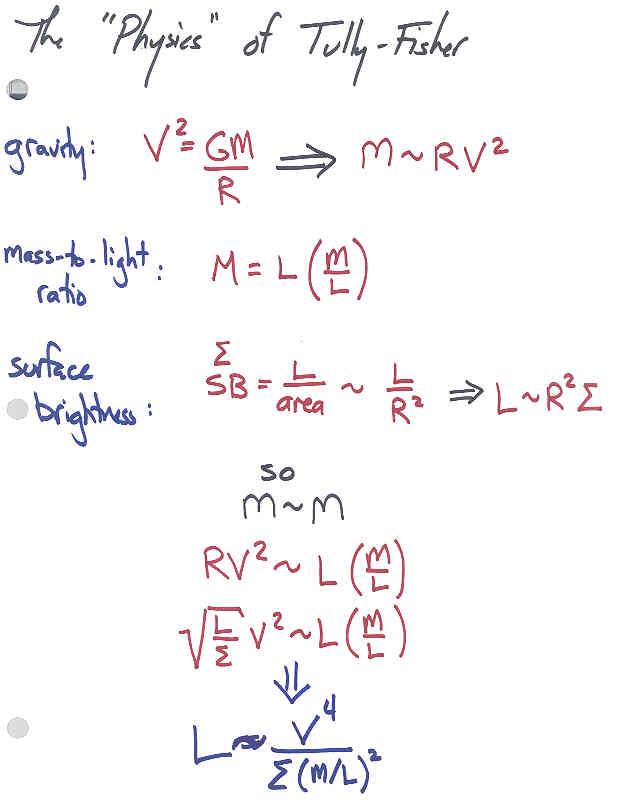 The "Physics" of Tully-Fisher
gravity: V² = GM/R ⇒ M ~ RV²
mass-to-light ratio: M = L (M/L)
Σ
surface brightness: SB = L/area ~ L/R² ⇒ L ~ R²Σ
so
M ~ M
RV² ~ L (M/L)
√(L/Σ) V² ~ L (M/L)
⇓
L ~ V⁴/Σ(M/L)²